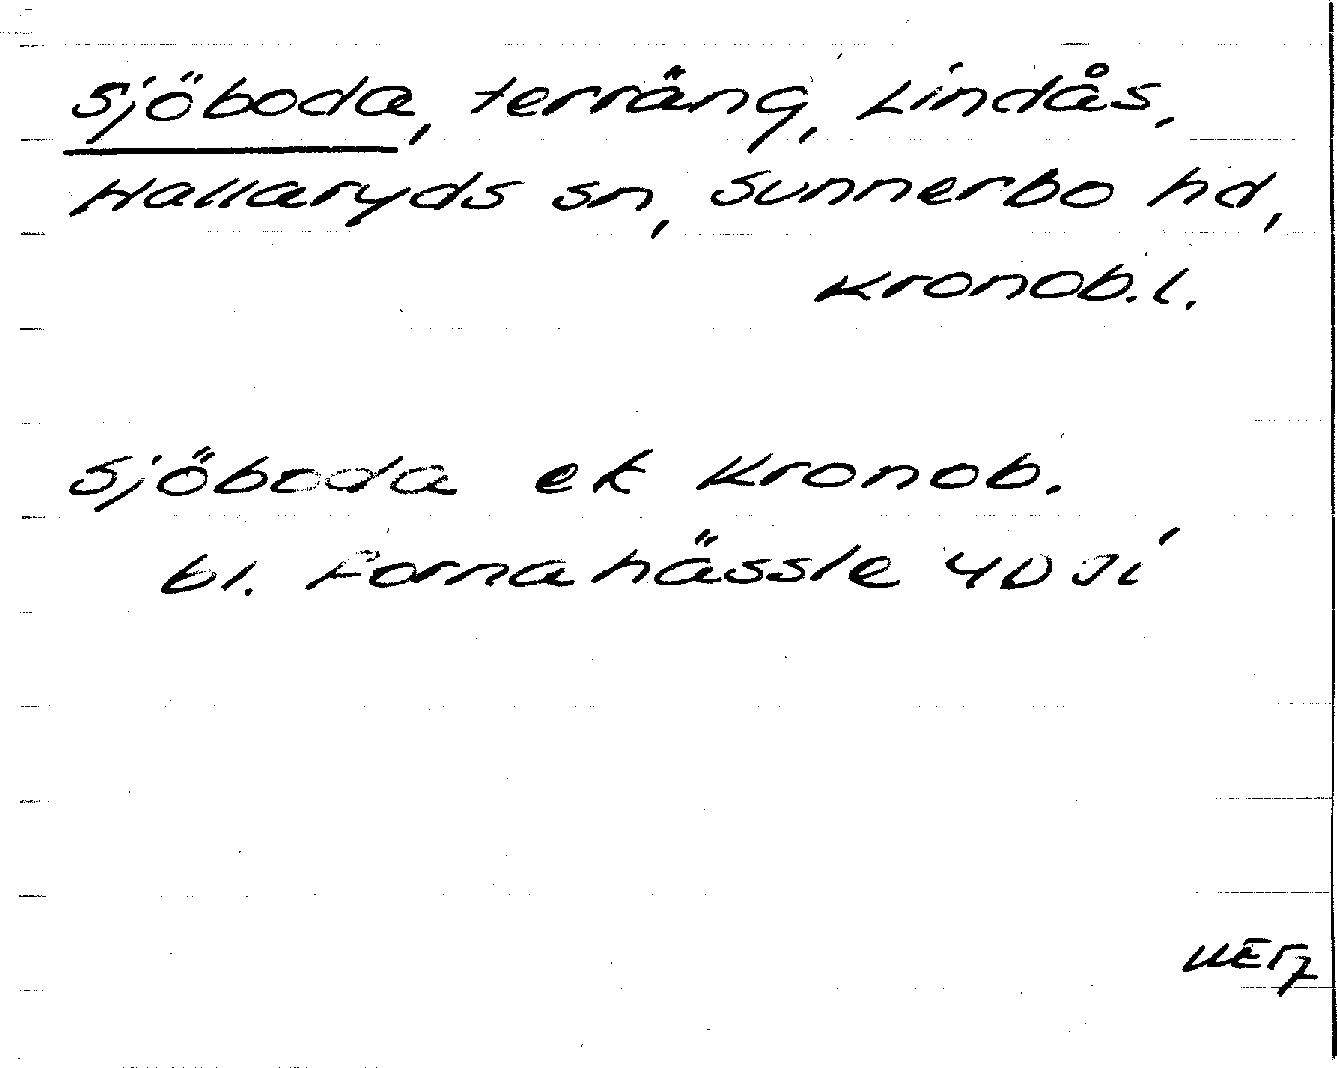 Sjöboda, terräng, Lindås,
Hallaryds sn, Sunnerbo hd,
Kronob. l.
Sjöboda ek Kronob.
bl. Fornahässle 4D